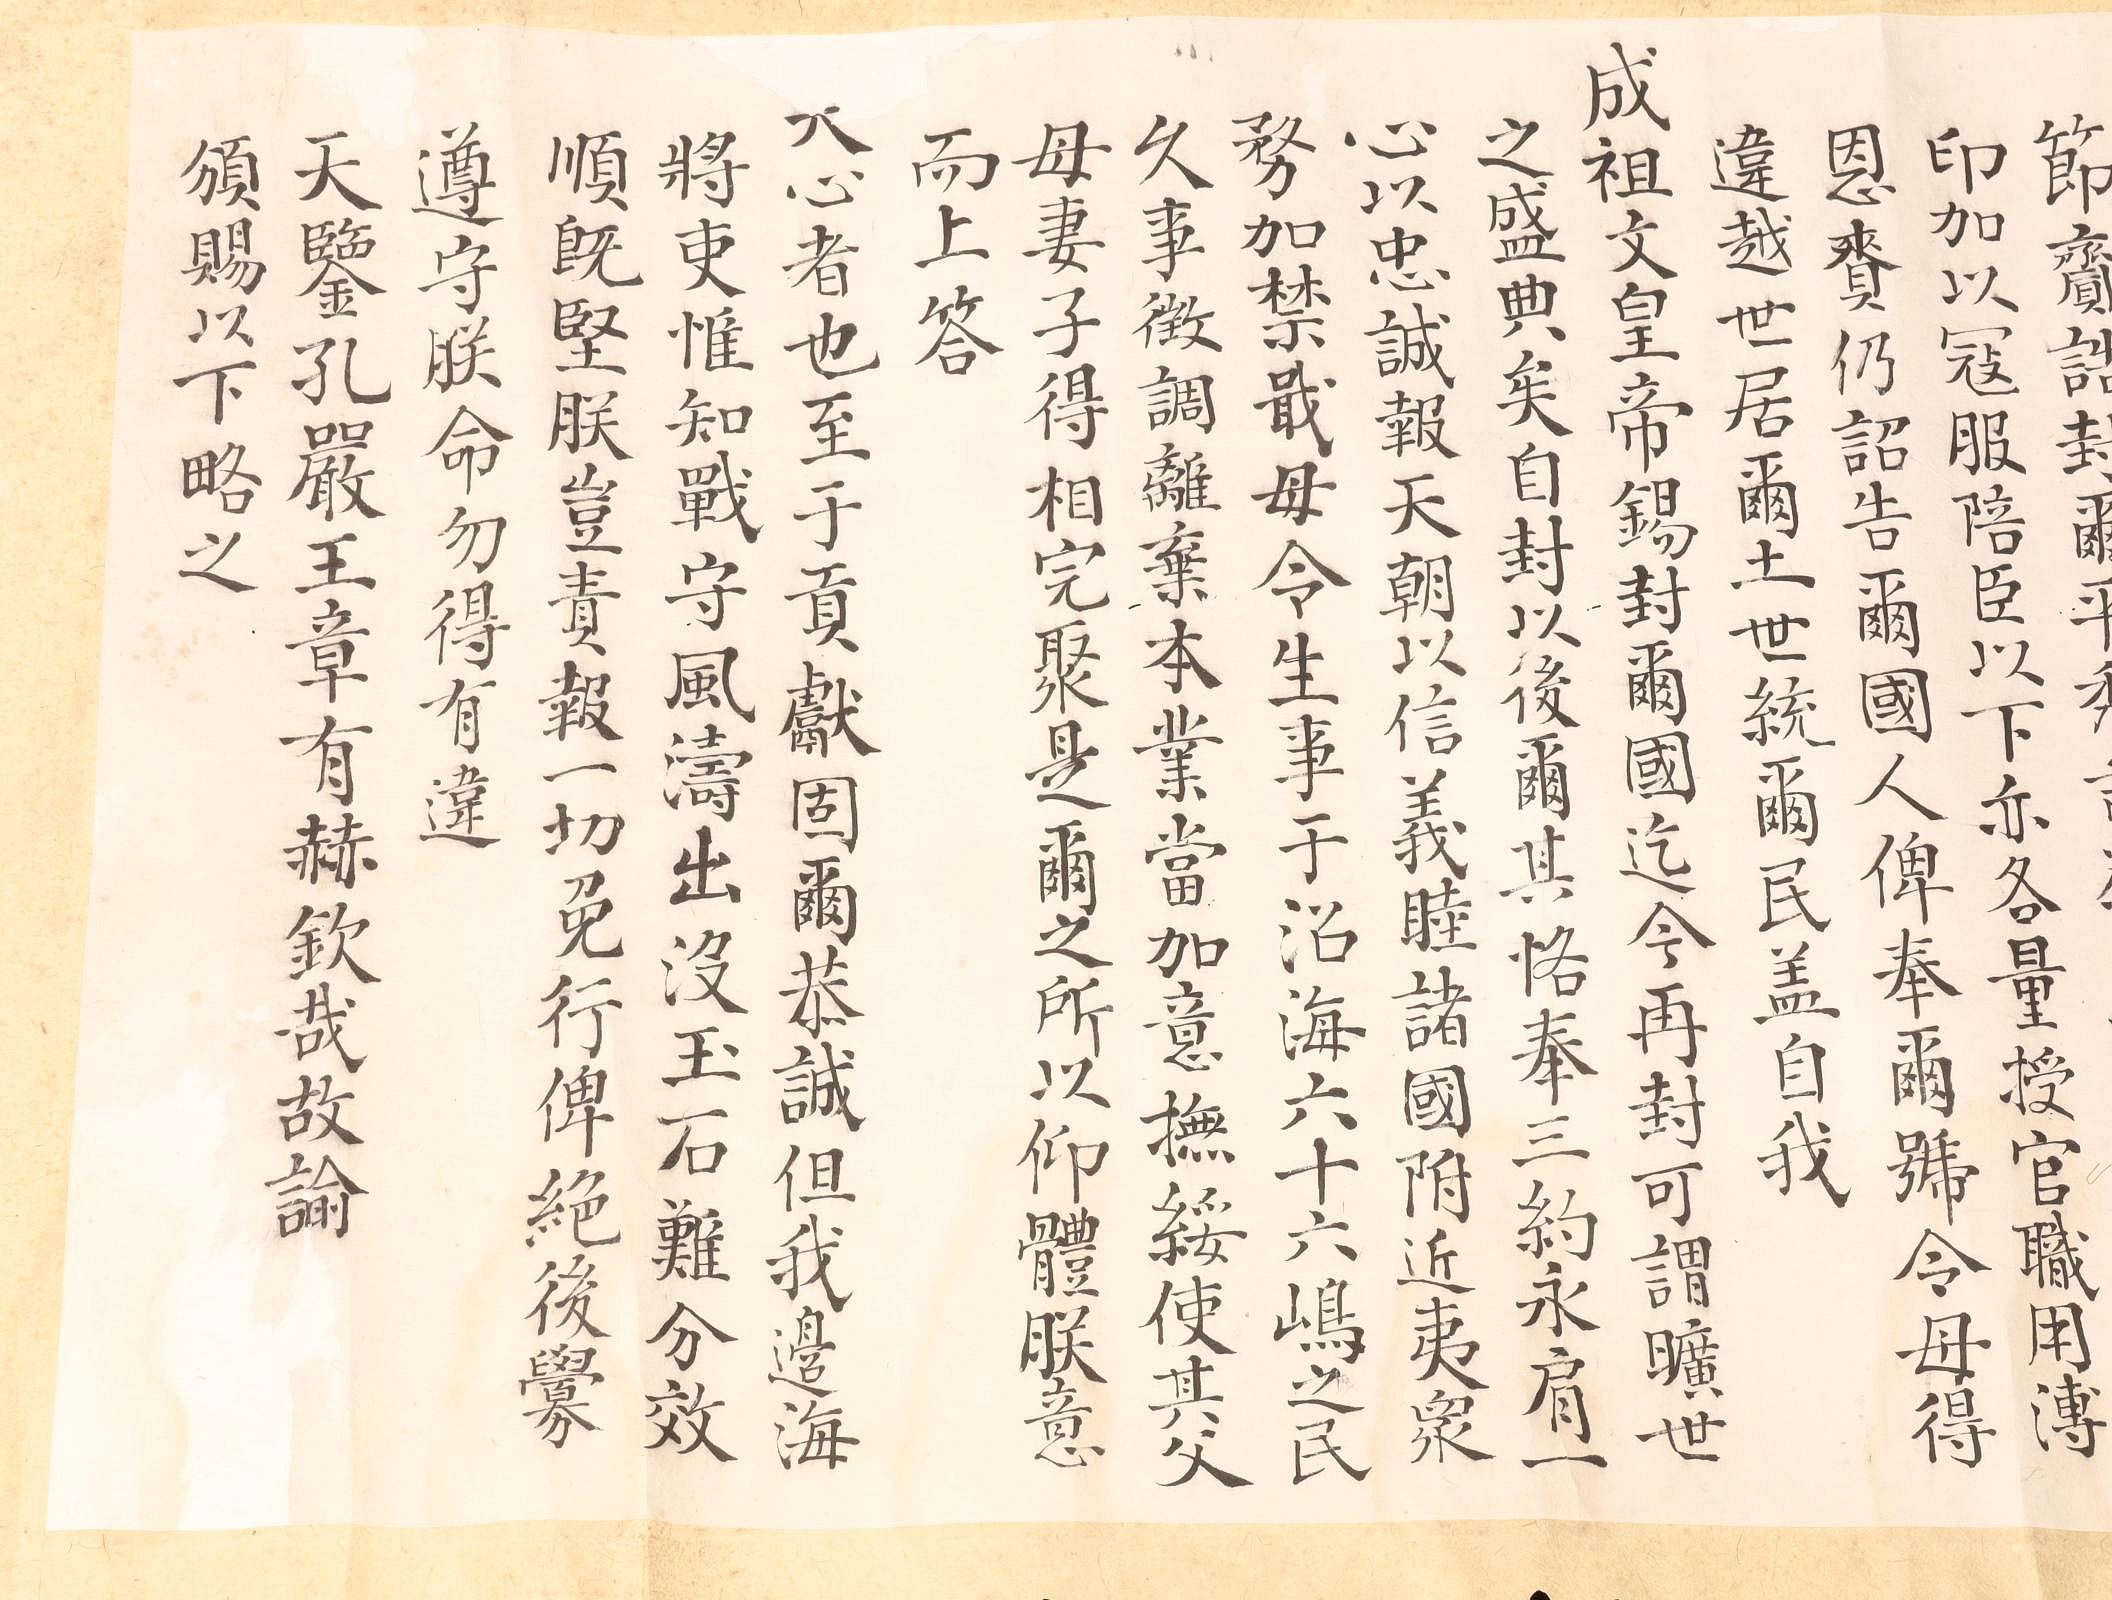 節齎誥封爾平秀
印加以冠服陪臣以下亦各量授官職用溥
恩賚仍詔告爾國人俾奉爾號令毋得
違越世居爾土世統爾民盖自我
成祖文皇帝錫封爾國迄今再封可謂曠世
之盛典矣自封以後爾其恪奉三約永肩一
心以忠誠報天朝以信義睦諸國附近夷衆
務加禁戢毋令生事于沿海六十六嶋之民
久事徵調離棄本業當加意撫綏使其父
母妻子得相完聚是爾之所以仰體朕意
而上答
天心者也至于貢獻固爾恭誠但我邊海
將吏惟知戰守風濤出沒玉石難分效
順既堅朕豈責報一切免行俾絶後釁
遵守朕命勿得有違
天鑒孔嚴王章有赫欽哉故諭
頒賜以下略之